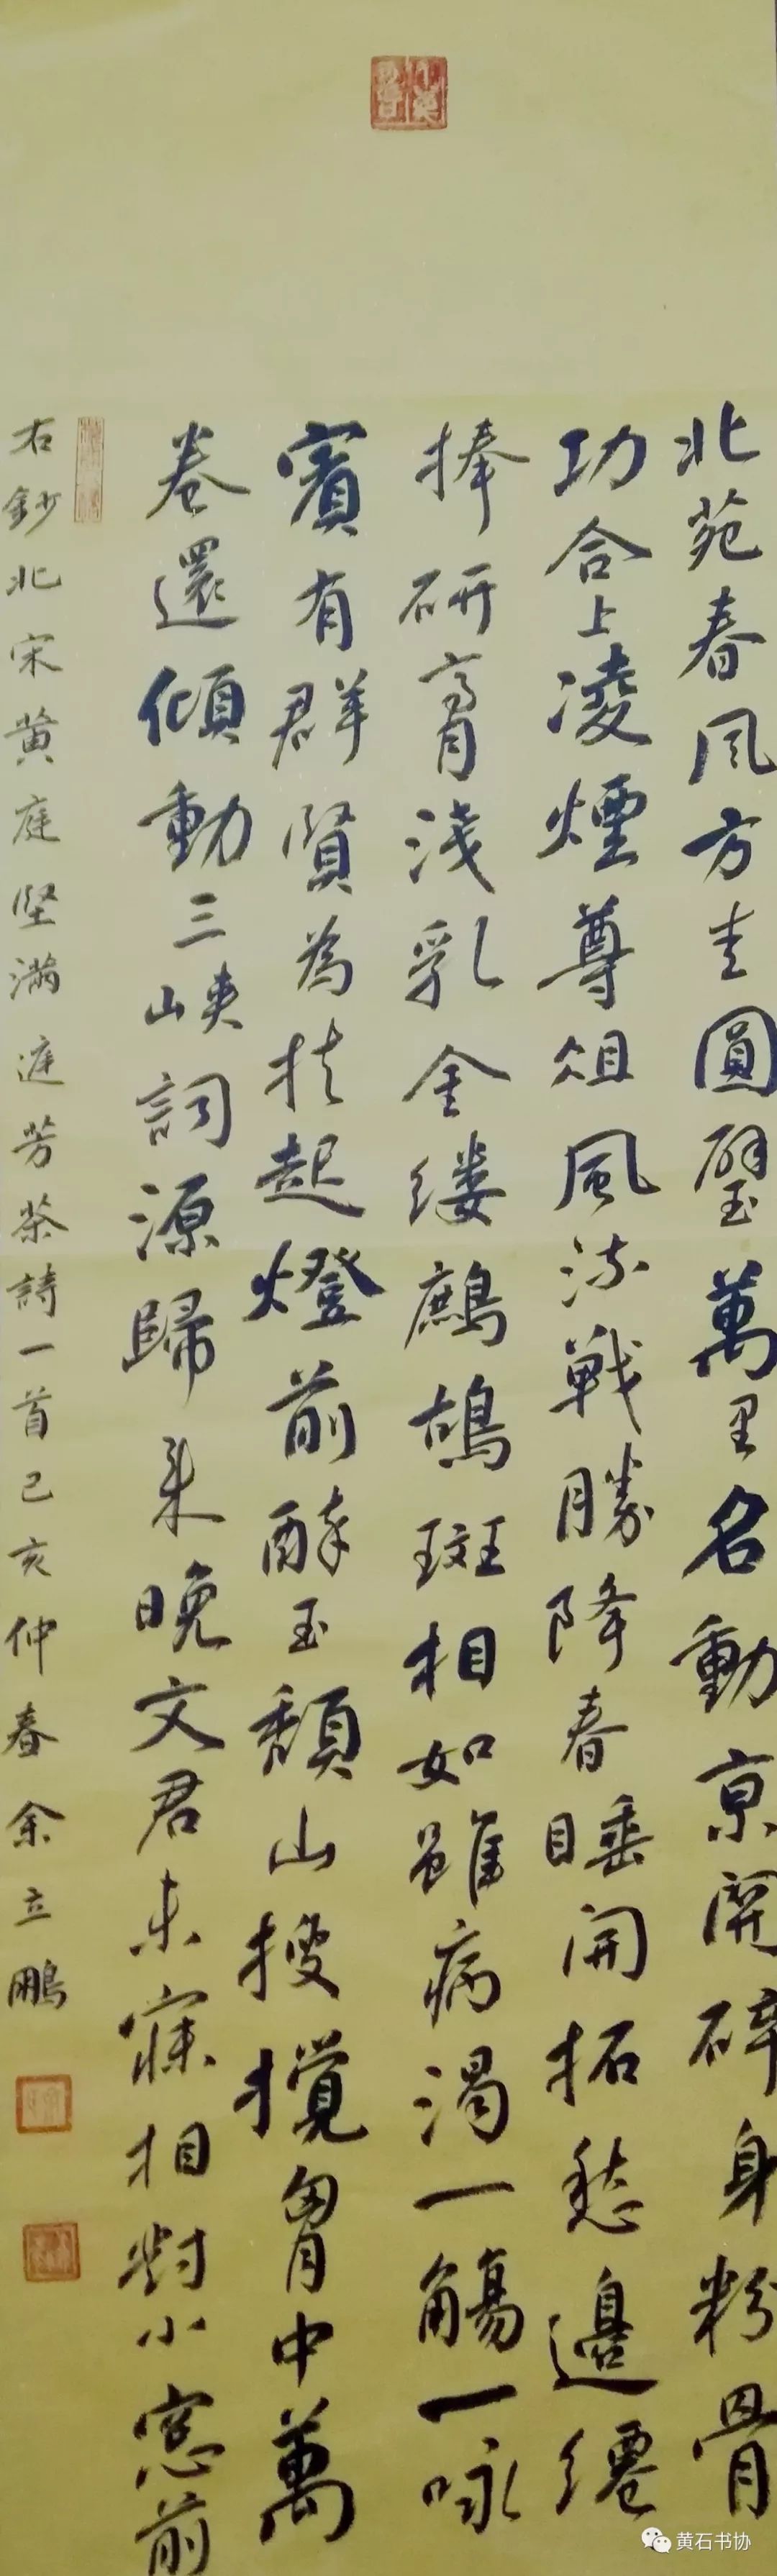 北苑春风方圭圓璧萬里名動京関碎身粉骨
功合上凌煙尊俎風流戦勝降春睡開拓愁邊纖
捧研膏淺乳金縷鷓鴣斑相如雖病渴一觴一咏
賓有群賢為扶起燈前醉玉頹山搜攪胷中萬
卷還傾動三峽詞源歸来晚文君未寐相對小窓前
右鈔北宋黄庭堅滿庭芳茶詩一首己亥仲春余立鵬
黄石书协